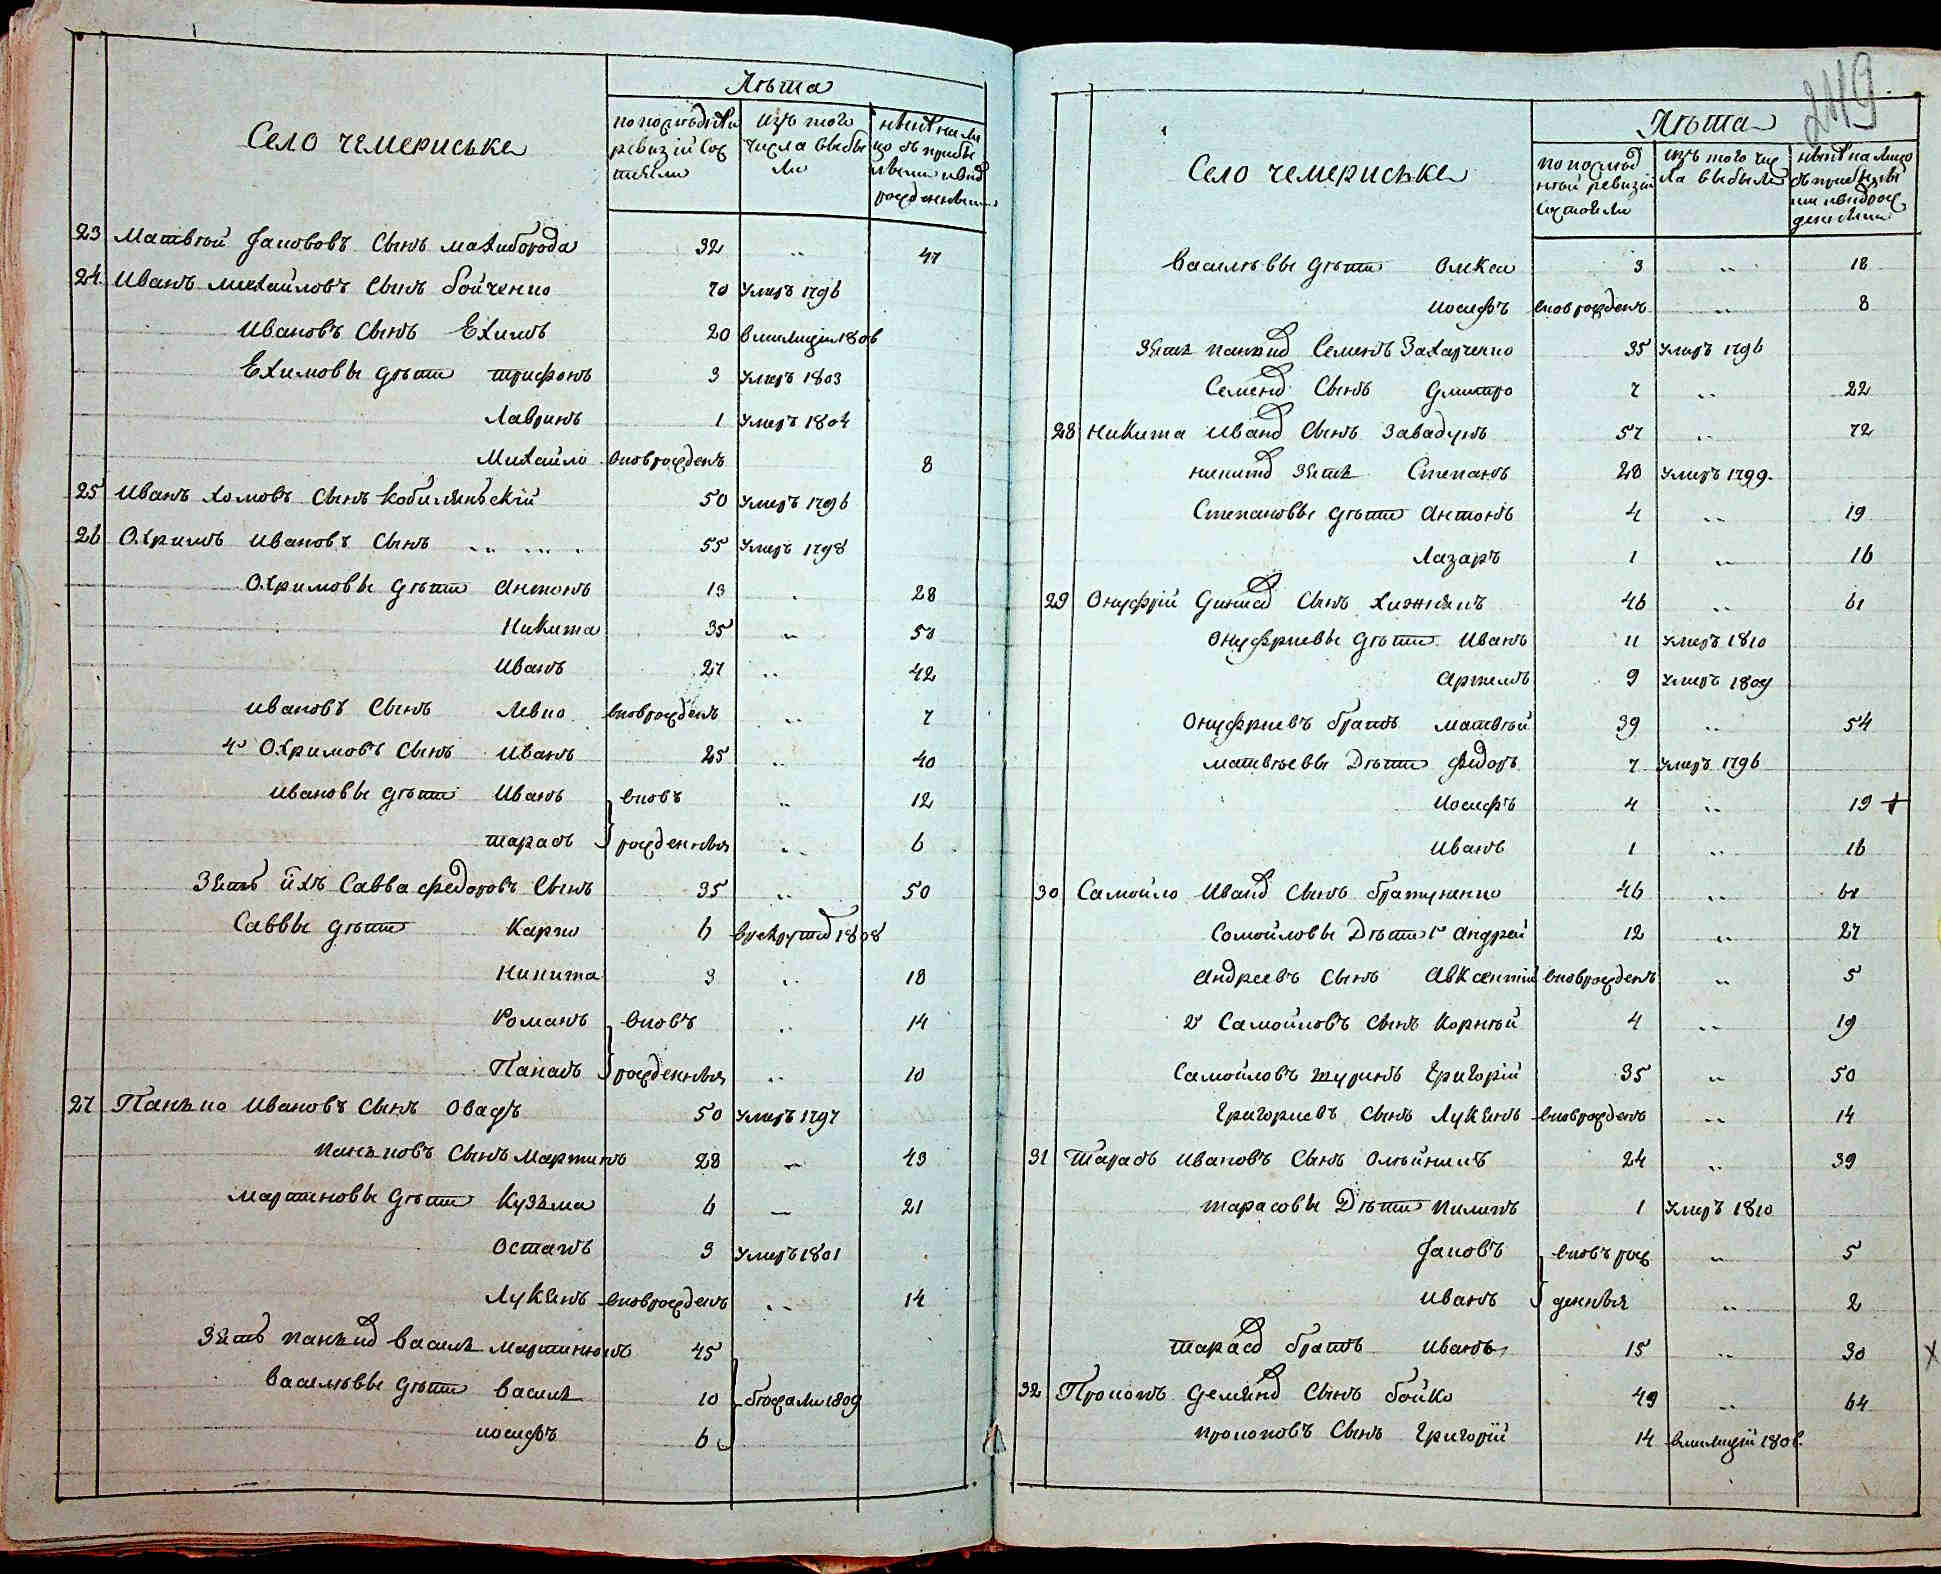 Село чемериське
Лѣта
по послѣдней ревизiи состояли
изъ того числа выбыли
нынѣ на лицо съ прибылыми и вновь рожденными
23 Матвѣй Якововъ Сынъ махиборода 32 „ 47
24 Иванъ михайловъ Сынъ бойченко 70 умеръ 1796
Ивановъ Сынъ Ехимъ 20 в милицiи 1806
Ехимовы дѣти трифонъ 3 умеръ 1803
Лавринъ 1 умеръ 1804
Михайло вновърожденъ 8
25 Иванъ хомовъ Сынъ кобилянъскiй 50 умеръ 1796
26 Охримъ Ивановъ Сынъ „ „ „ 55 умеръ 1798
Охримовы дѣти Антонъ 13 „ 28
Никита 35 „ 50
Иванъ 27 „ 42
Ивановъ Сынъ Левко вновърожденъ „ 7
4й Охримовъ Сынъ Иванъ 25 „ 40
Ивановы дѣти Иванъ вновъ „ 12
тарасъ рожденныя „ 6
Зять ихъ Савва федоровъ Сынъ 35 „ 50
Саввы дѣти Карпо 6 в рекрутахъ 1808
Никита 3 „ 18
Романъ вновъ „ 14
Панасъ рожденныя „ 10
27 Панько Ивановъ Сынъ 50 умеръ 1797
паньковъ Сынъ мартинъ 28 „ 43
мартиновы дѣти Кузьма 6 „ 21
Остапъ 3 умеръ 1801
Лукянъ вновърожденъ „ 14
Зять паньковъ василь мартинюкъ 45
Василѣвы дѣти василь 10 бѣжали 1809
иосифъ 6
249
Село чемериське
Лѣта
по послѣдней ревизiи состояли
изъ того числа выбыли
нынѣ на лицо съ прибылыми и вновърожденными
Василѣвы дѣти Олекса 3 „ 18
иосифъ вновърожденъ „ 8
Зять паньковъ Семенъ Захарченко 35 умеръ 1796
Семеновъ Сынъ дмитро 7 „ 22
28 Никита Ивановъ Сынъ Завадунъ 57 „ 72
никитовъ Зять Степанъ 28 умеръ 1799
Степановы дѣти Антонъ 4 „ 19
Лазаръ 1 „ 16
29 Онуфрiй Сынъ хижнякъ 46 „ 61
Онуфриевы дѣти Иванъ 11 умеръ 1810
Артемъ 9 умеръ 1809
Онуфриевъ братъ матвѣй 39 „ 54
матвѣевы Дѣти федоръ 7 умеръ 1796
Иосифъ 4 „ 19 +
Иванъ 1 „ 16
30 Самойло Ивановъ Сынъ братуненко 46 „ 61
Сомойловы Дѣти 1й Андрей 12 „ 27
Андреевъ Сынъ Авксентiй вновърожденъ „ 5
2й Самойловъ Сынъ Корнѣй 4 „ 19
Самойловъ шуринъ Григорiй 35 „ 50
Григориевъ Сынъ Лукянъ вновърожденъ „ 14
31 Тарасъ Ивановъ Сынъ Олѣйникъ 24 „ 39
тарасовы Дѣти Пилипъ 1 умеръ 1810
Яковъ вновъ рож „ 5
Иванъ денныя „ 2
тарасовъ братъ Иванъ 15 „ 30 ×
32 Прокопъ Демяновъ Сынъ бойко 49 „ 64
прокоповъ Сынъ Григорiй 14 в милицiи 1806